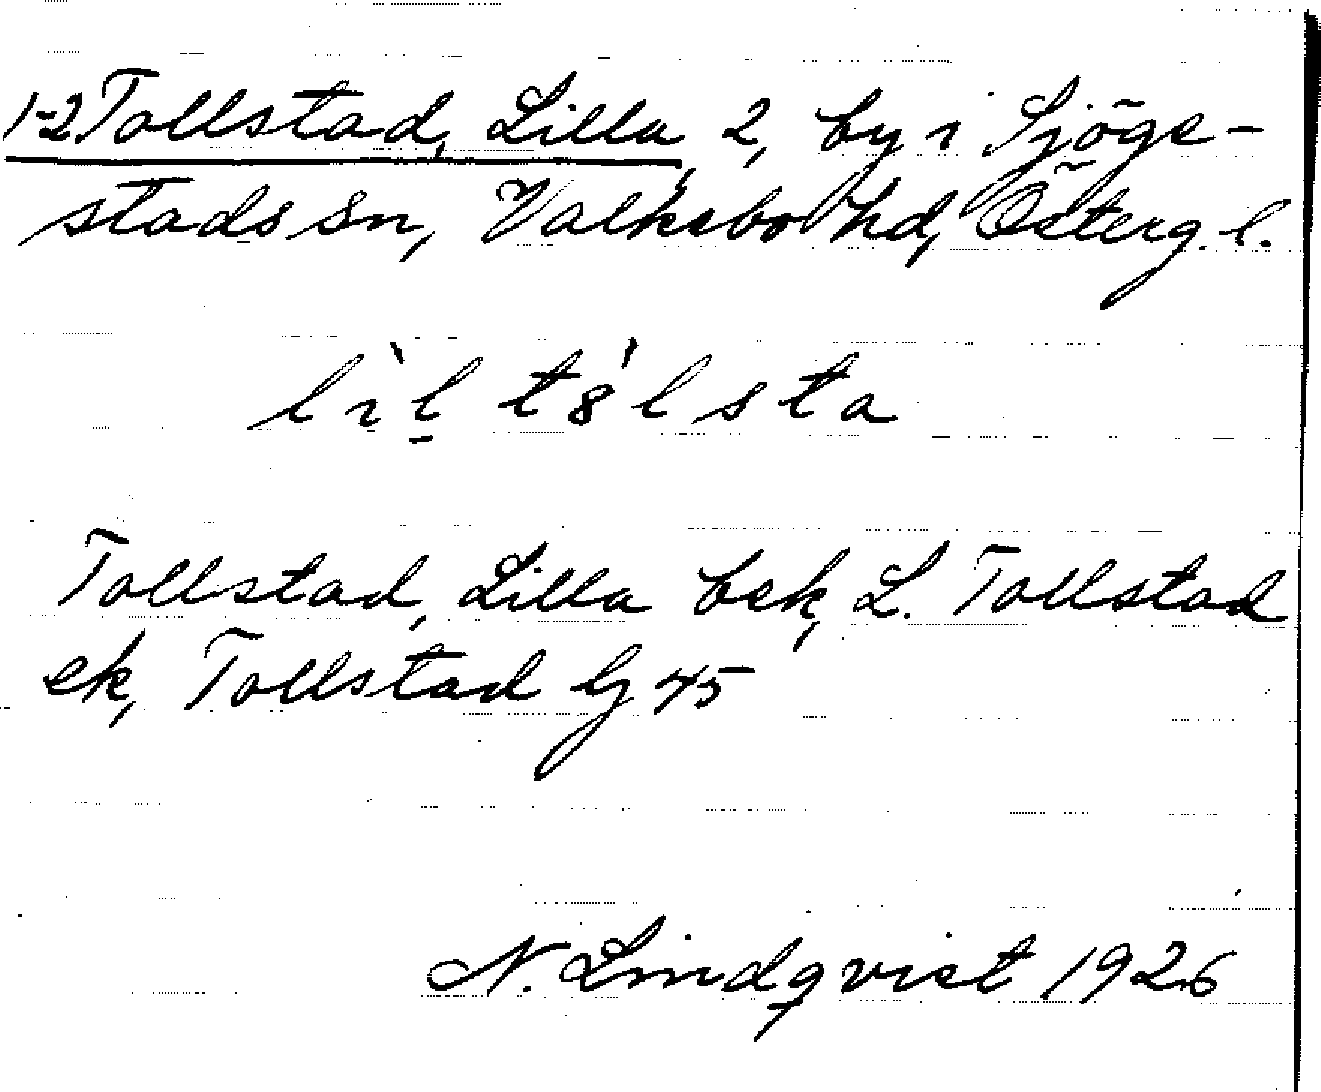 1-2 Tollstad, Lilla, 2, by i Sjöge-
stads sn, Valkebo hd, Österg. l.
lìl̠ t8́lsta
Tollstad, Lilla bek, L. Tollstad
ek, Tollstad G 45
N. Lindqvist 1926